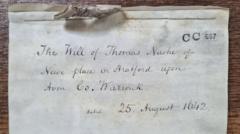 CC 627
The Will of Thomas Nashe of
New place in Stratford upon
Avon Co. Warwick
dated 25. August 1642